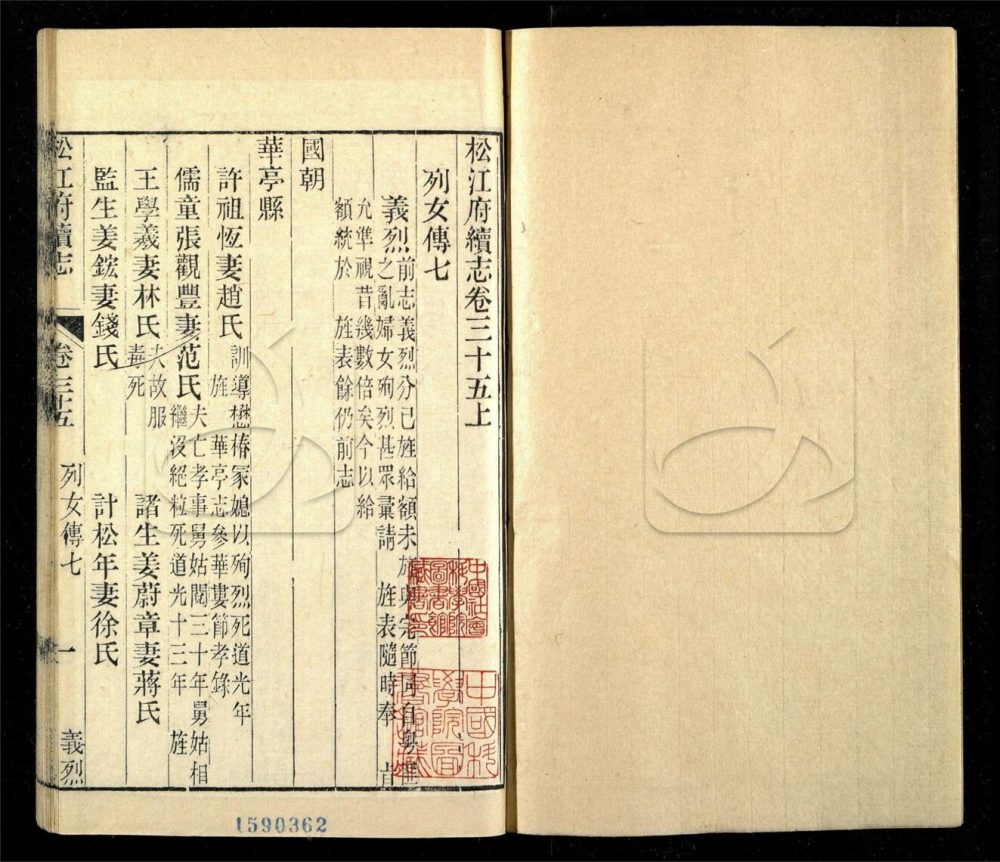 松江府續志卷三十五上
列女傳七
義烈前志義烈分已旌給額未旌與完節同自粵匪
之亂婦女殉烈甚眾彙請 旌表隨時奉 旨
允準視昔幾數倍矣今以給
額統於 旌表餘仍前志
國朝
華亭縣
許祖恆妻趙氏訓導懋椿冢媳以殉烈死道光年
旌 華亭志參華婁節孝錄
儒童張觀豐妻范氏夫亡孝事舅姑閱三十年舅姑相
繼沒絕粒死道光十三年 旌
王學羲妻林氏夫故服
毒死
諸生姜蔚章妻蔣氏
監生姜鋐妻錢氏
計松年妻徐氏
松江府續志
卷三十五
列女傳七
一
義烈
中國社會
科學院
圖書館
藏書印
中國科
學院圖
1590362